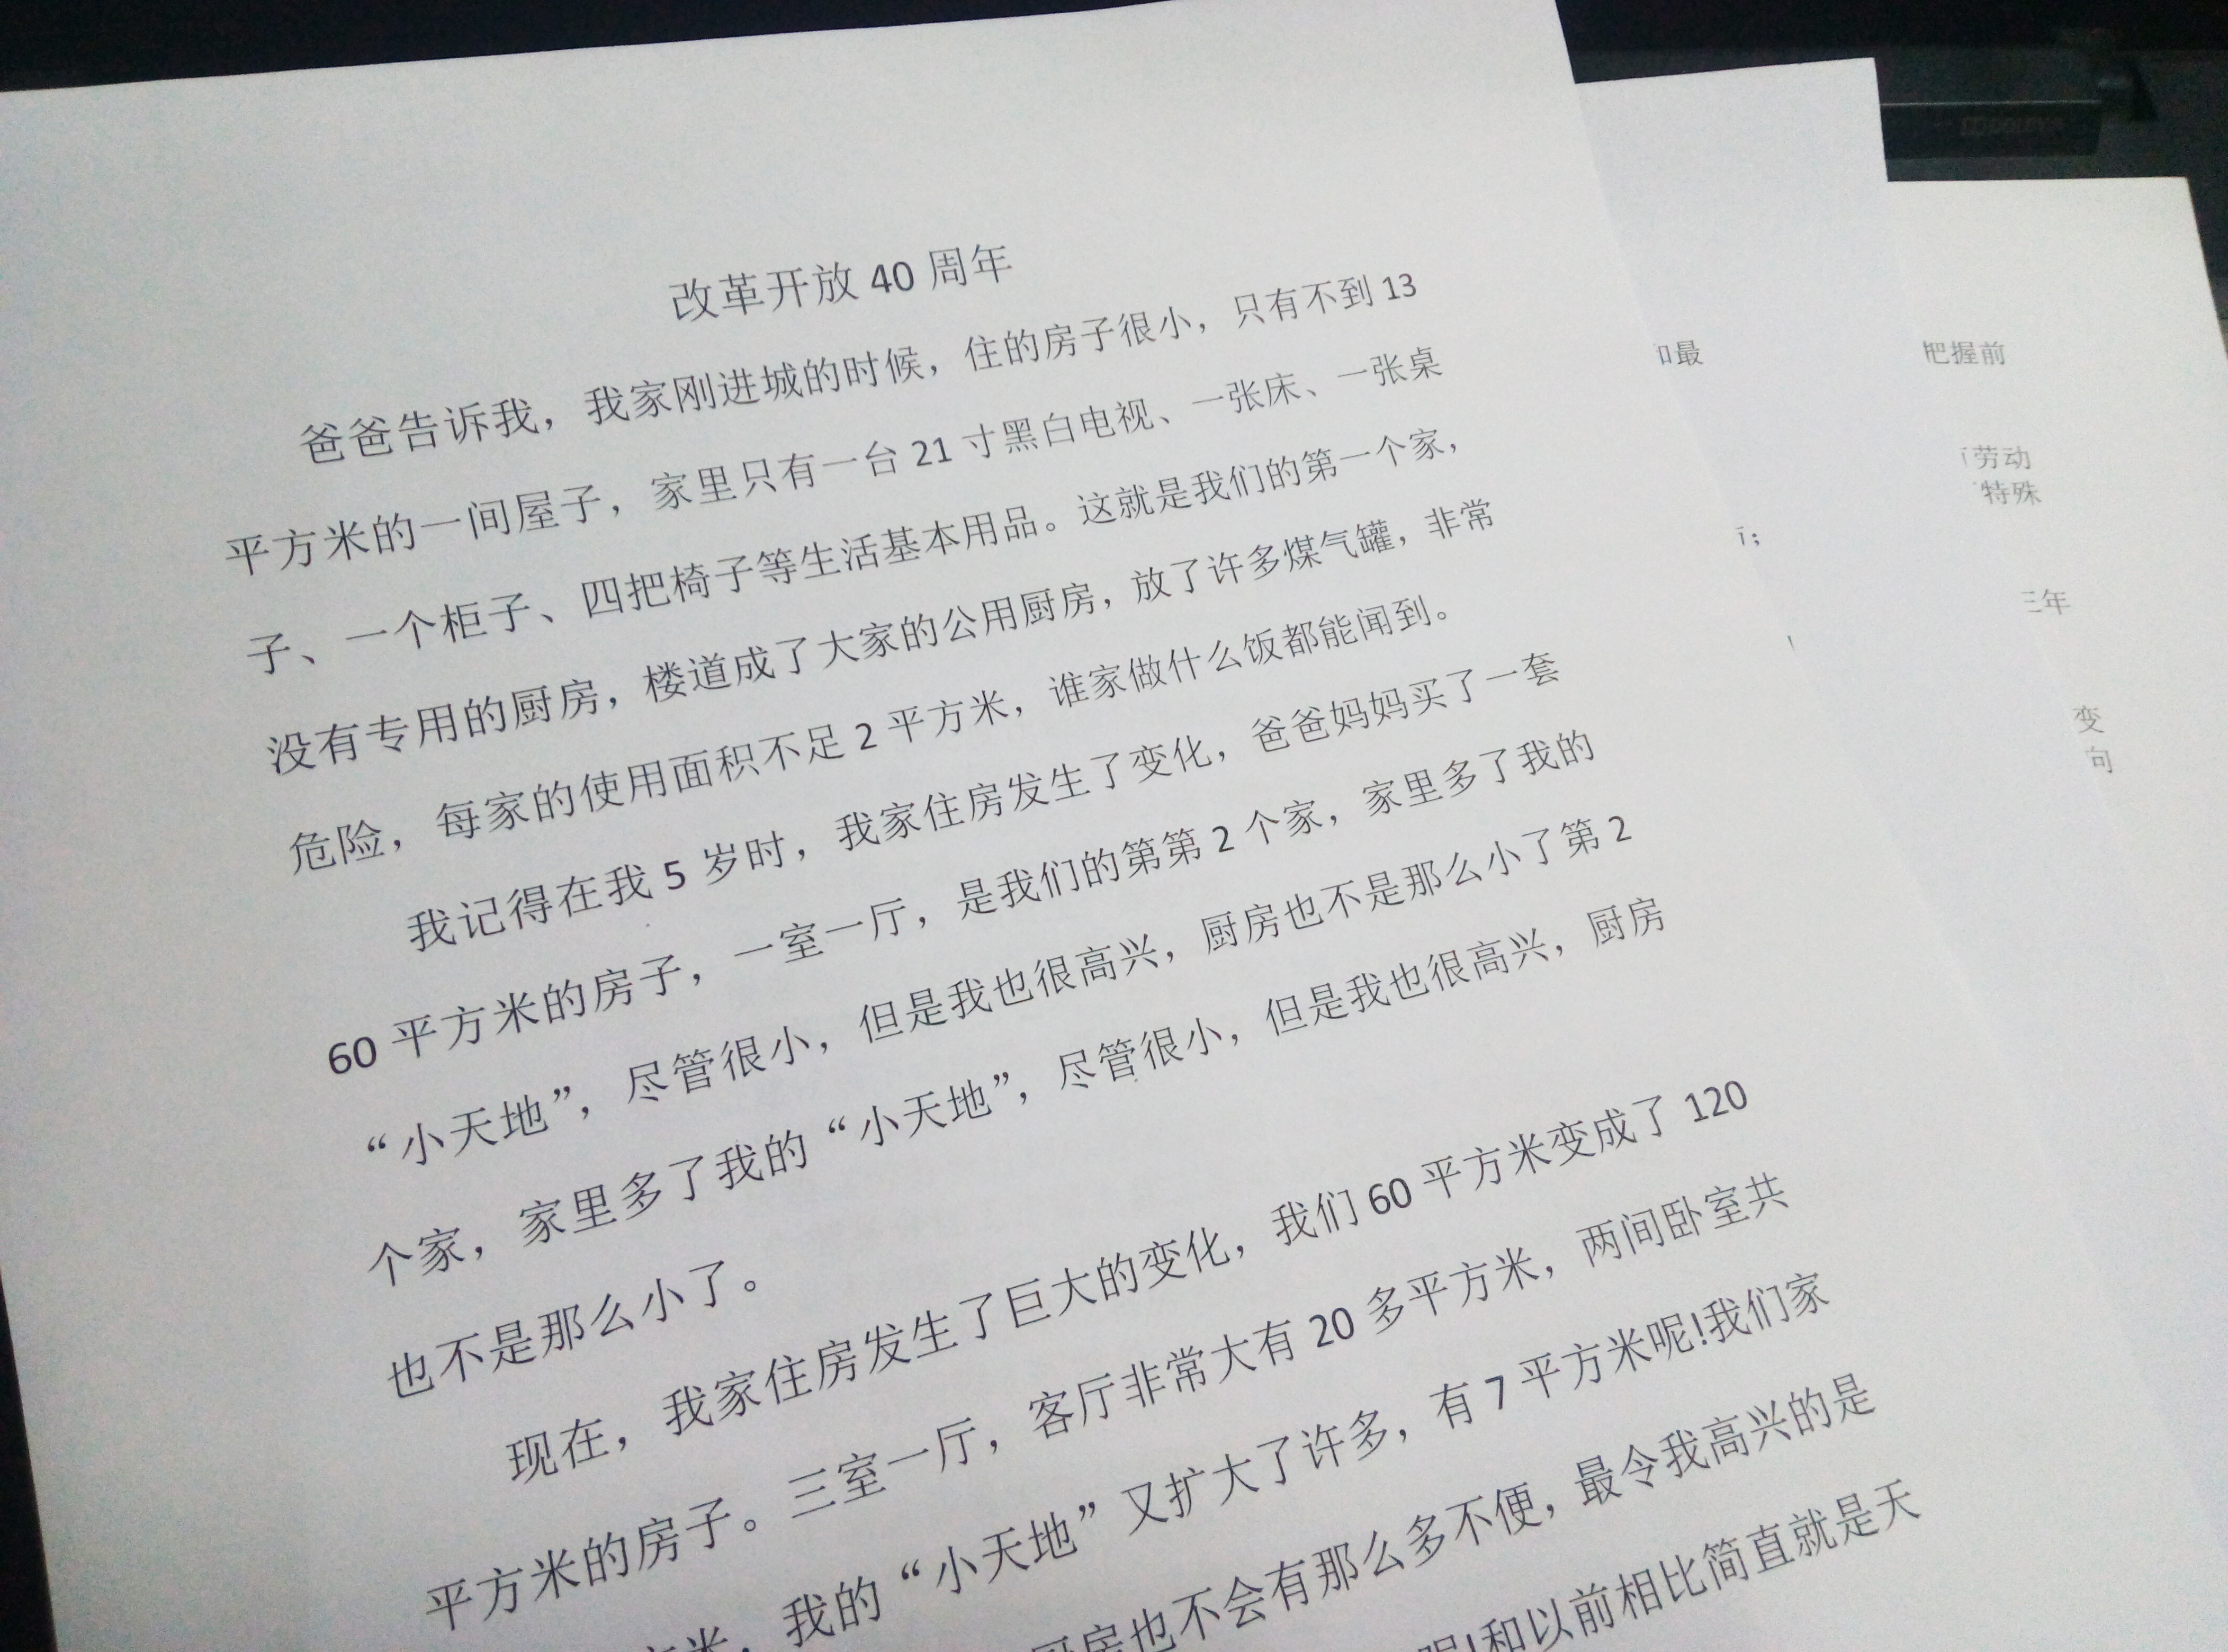 改革开放 40 周年
爸爸告诉我，我家刚进城的时候，住的房子很小，只有不到 13
平方米的一间屋子，家里只有一台 21 寸黑白电视、一张床、一张桌
子、一个柜子、四把椅子等生活基本用品。这就是我们的第一个家，
没有专用的厨房，楼道成了大家的公用厨房，放了许多煤气罐，非常
危险，每家的使用面积不足 2 平方米，谁家做什么饭都能闻到。
我记得在我 5 岁时，我家住房发生了变化，爸爸妈妈买了一套
60 平方米的房子，一室一厅，是我们的第第 2 个家，家里多了我的
“小天地”，尽管很小，但是我也很高兴，厨房也不是那么小了第 2
个家，家里多了我的“小天地”，尽管很小，但是我也很高兴，厨房
也不是那么小了。
现在，我家住房发生了巨大的变化，我们 60 平方米变成了 120
平方米的房子。三室一厅，客厅非常大有 20 多平方米，两间卧室共
方米，我的“小天地”又扩大了许多，有 7 平方米呢!我们家
厨房也不会有那么多不便，最令我高兴的是
呢!和以前相比简直就是天
和最
；
把握前
劳动
特殊
三年
变
句